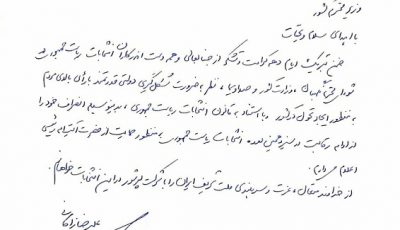 وزیر محترم کشور
با اهدای سلام و تحیات
ضمن تبریک ایام دهه کرامت و تشکر از جنابعالی و همه دست اندرکاران انتخابات ریاست جمهوری
شورای نگهبان، وزارت کشور و صدا و سیما، نظر به ضرورت شکل گیری دولتی قدرتمند با رأی بالای مردم
به منظور ایجاد تحول در کشور و با استناد به قانون انتخابات ریاست جمهوری، بدینوسیله انصراف خود را
از ادامه رقابت در سیزدهمین دوره انتخابات ریاست جمهوری به منظور حمایت از حضرت آیت اله رئیسی
اعلام می دارم.
از خداوند متعال، عزت و سربلندی ملت شریف ایران را با شرکت پرشور در این انتخابات خواهانم.
علیرضا زاکانی